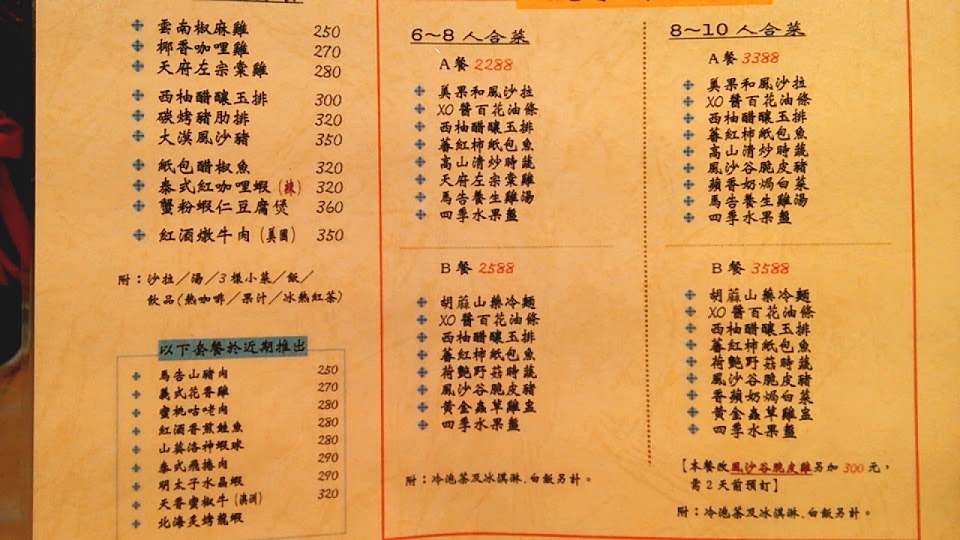 雲南椒麻雞 250
椰香咖哩雞 270
天府左宗棠雞 280
西柚醋釀玉排 300
碳烤豬肋排 320
大漠風沙豬 350
紙包醋椒魚 320
泰式紅咖哩蝦(辣) 320
蟹粉蝦仁豆腐煲 360
紅酒燉牛肉(美國) 350
附：沙拉／湯／3樣小菜／飯／
飲品(熱咖啡／果汁／冰熱紅茶)
以下套餐於近期推出
馬告山豬肉 250
義式花香雞 270
蜜桃咕咾肉 280
紅酒香煎鮭魚 280
山葵洛神蝦球 280
泰式飛捲肉 290
明太子水晶蝦 290
天香蜜椒牛(澳洲) 320
北海炙烤龍蝦
6~8人合菜
A餐 2288
美果和風沙拉
XO醬百花油條
西柚醋釀玉排
蕃紅柿紙包魚
高山清炒時蔬
天府左宗棠雞
馬告養生雞湯
四季水果盤
B餐 2588
胡蔴山藥冷麵
XO醬百花油條
西柚醋釀玉排
蕃紅柿紙包魚
荷艷野菇時蔬
風沙谷脆皮豬
黃金蟲草雞盅
四季水果盤
附：冷泡茶及冰淇淋,白飯另計。
8~10人合菜
A餐 3388
美果和風沙拉
XO醬百花油條
西柚醋釀玉排
蕃紅柿紙包魚
高山清炒時蔬
風沙谷脆皮豬
蘋香奶焗白菜
馬告養生雞湯
四季水果盤
B餐 3588
胡蔴山藥冷麵
XO醬百花油條
西柚醋釀玉排
蕃紅柿紙包魚
荷艷野菇時蔬
風沙谷脆皮豬
香蘋奶焗白菜
黃金蟲草雞盅
四季水果盤
【本餐改風沙谷脆皮雞另加300元，
需2天前預訂】
附：冷泡茶及冰淇淋,白飯另計。